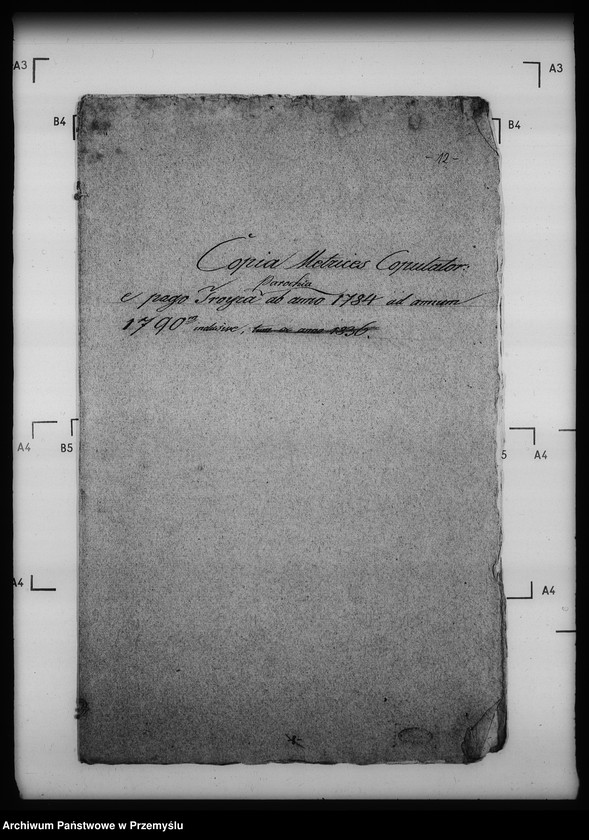 A3
A3
B4
B4
-12-
Copia Metrices Copulator:
Parochia
e pago Troyca ab anno 1784 ad annum
1790 inclusive, tum ex anno 1836.
A4
B5
5
A4
A4
A4
Archiwum Państwowe w Przemyślu